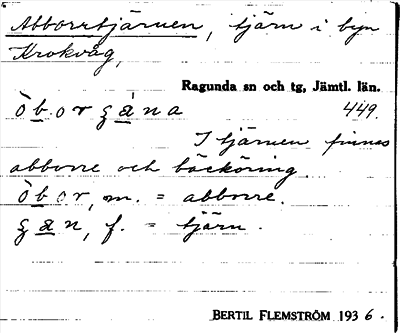 Abborrtjärnen, tjärn i byn
Krokvåg,
Ragunda sn och tg, Jämtl. län.
449.
I tjärnen finnes
abborre och bäcköring.
m. = abborre.
f. = tjärn.
BERTIL FLEMSTRÖM 1936.